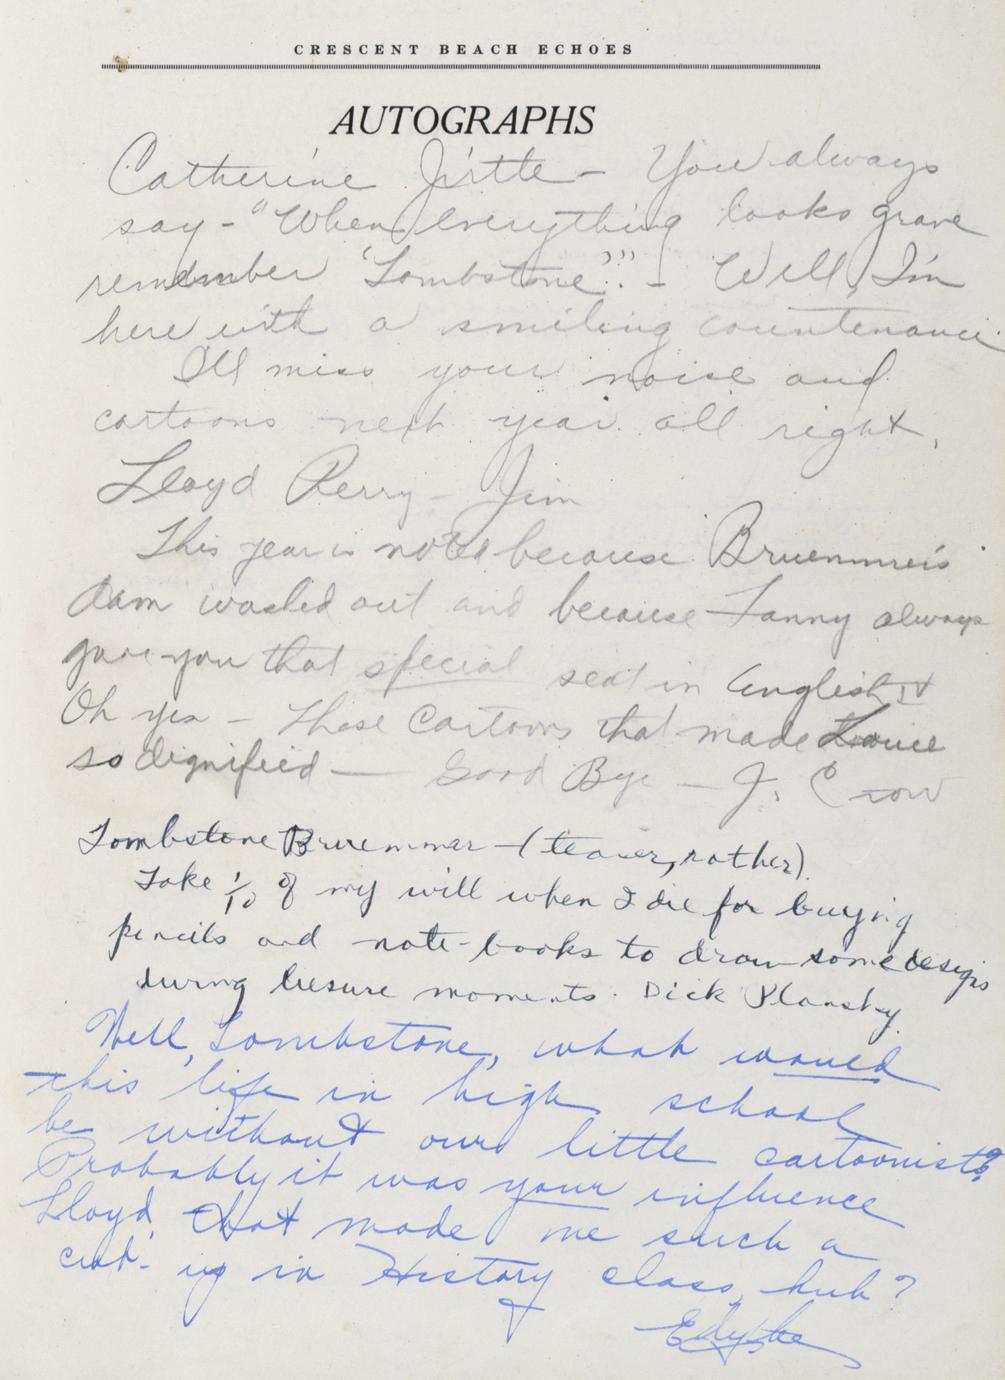 CRESCENT BEACH ECHOES
AUTOGRAPHS
Catherine - You always
say - "When everything looks grave
remember 'Tombstone'". - Well, I'm
here with a smiling countenance.
I'll miss your noise and
cartoons next year all right.
Lloyd Perry - Jim
This year is noted because Bruemmer's
dam washed out and because Fanny always
gave you that special seat in English IV
Oh yes - Those Cartoons that made
so dignified — Good Bye - J. Crow
Tombstone Bruemmer - (teaser, rather).
Take 1/10 of my will when I die for buying
pencils and note-books to draw some designs
during liesure moments. Dick Plansky.
Well, Tombstone, what would
this life in high school
be without our little cartoonist?
Probably it was your influence
Lloyd, that made me such a
cut-up in History class, huh?
Edythe